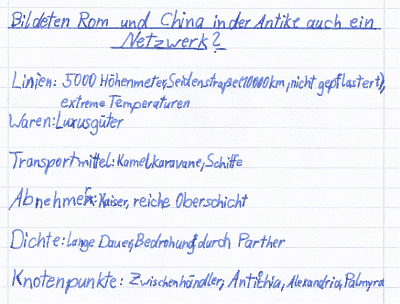 Bildeten Rom und China in der Antike auch ein
Netzwerk?
Linien: 5000 Höhenmeter, Seidenstraße(10000km, nicht gepflastert),
extreme Temperaturen
Waren: Luxusgüter
Transportmittel: Kamelkaravane, Schiffe
Abnehmer: Kaiser, reiche Oberschicht
Dichte: lange Dauer, Bedrohung durch Parther
Knotenpunkte: Zwischenhändler, Antichia, Alexandria, Palmyra